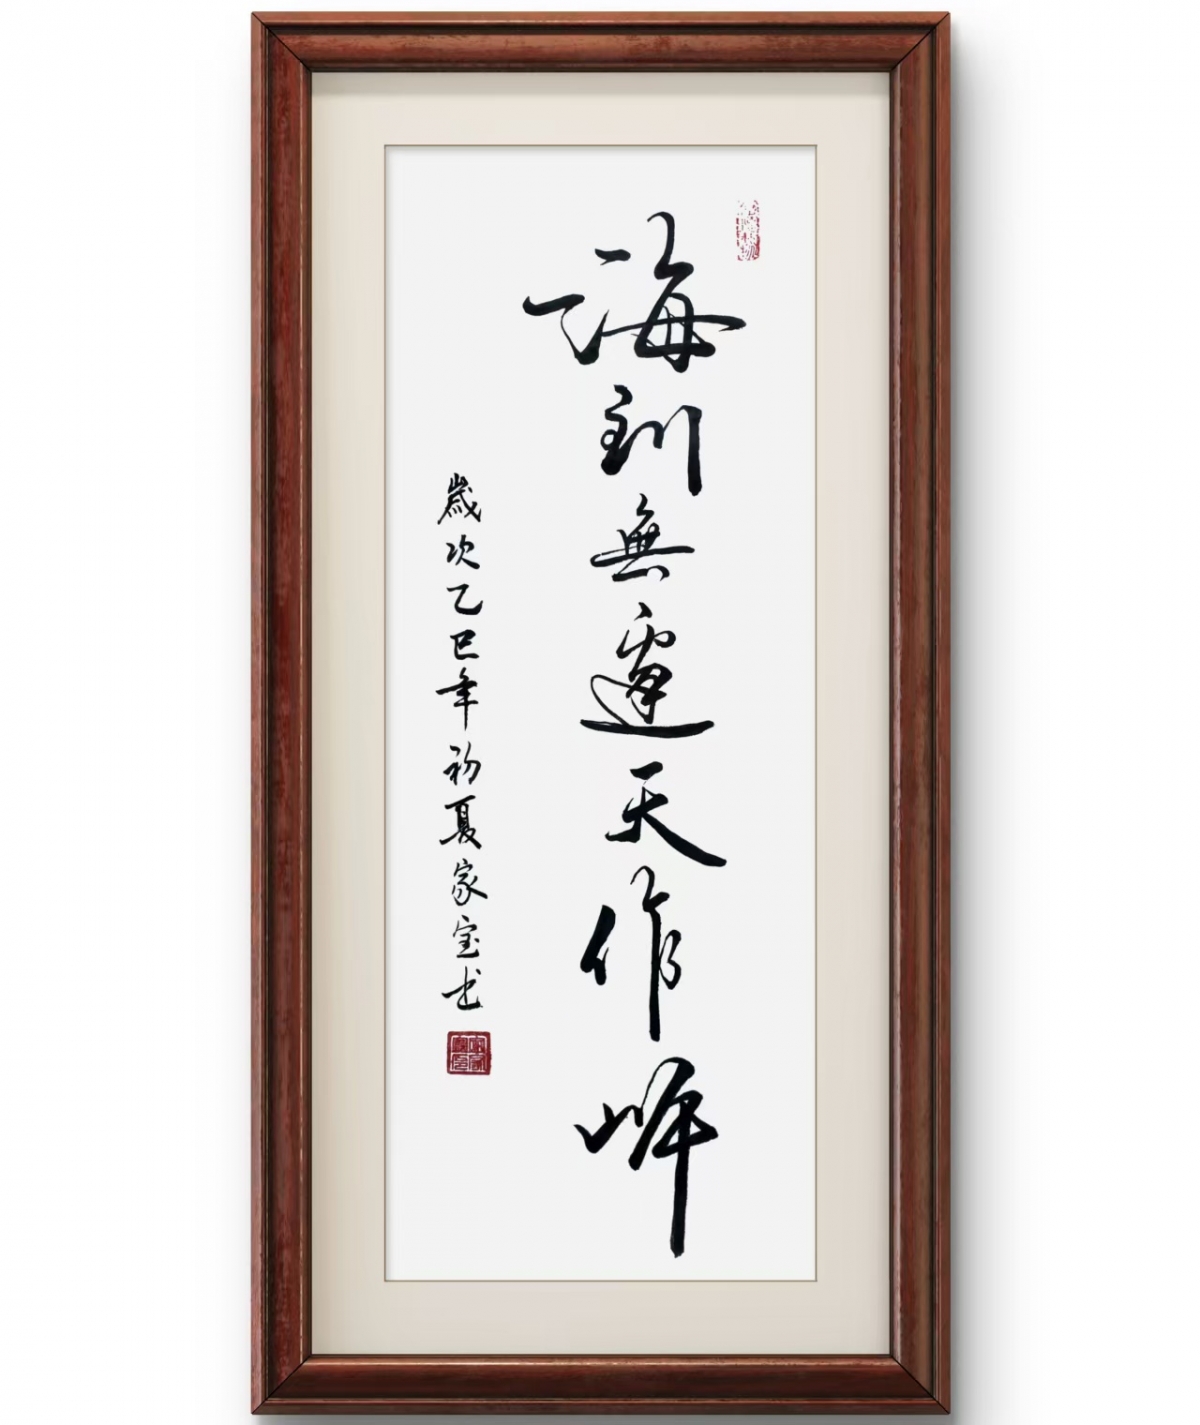 海到無邊天作岸
歲次乙巳年初夏家宝书